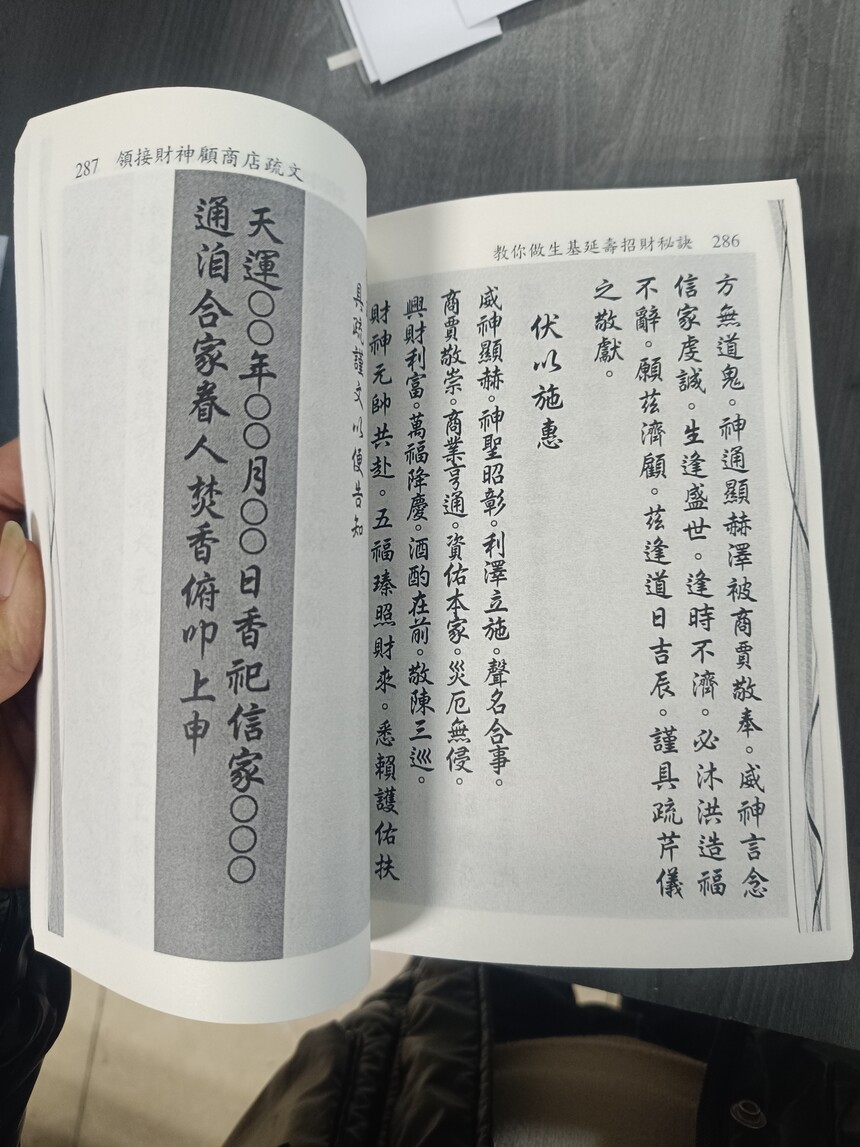 教你做生基延壽招財秘訣 286
方無道鬼。神通顯赫澤被商賈敬奉。威神言念
信家虔誠。生逢盛世。逢時不濟。必沐洪造福
不辭。願茲濟顧。茲逢道日吉辰。謹具疏芹儀
之敬獻。
伏以施惠
威神顯赫。神聖昭彰。利澤立施。聲名合事。
商賈敬崇。商業亨通。資佑本家。災厄無侵。
興財利富。萬福降慶。酒酌在前。敬陳三巡。
財神元帥共赴。五福臻照財來。悉賴護佑扶
287 領接財神顧商店疏文
具疏謹文以便告知
天運〇〇年〇〇月〇〇日香祀信家〇〇〇
通洎合家眷人焚香俯叩上申